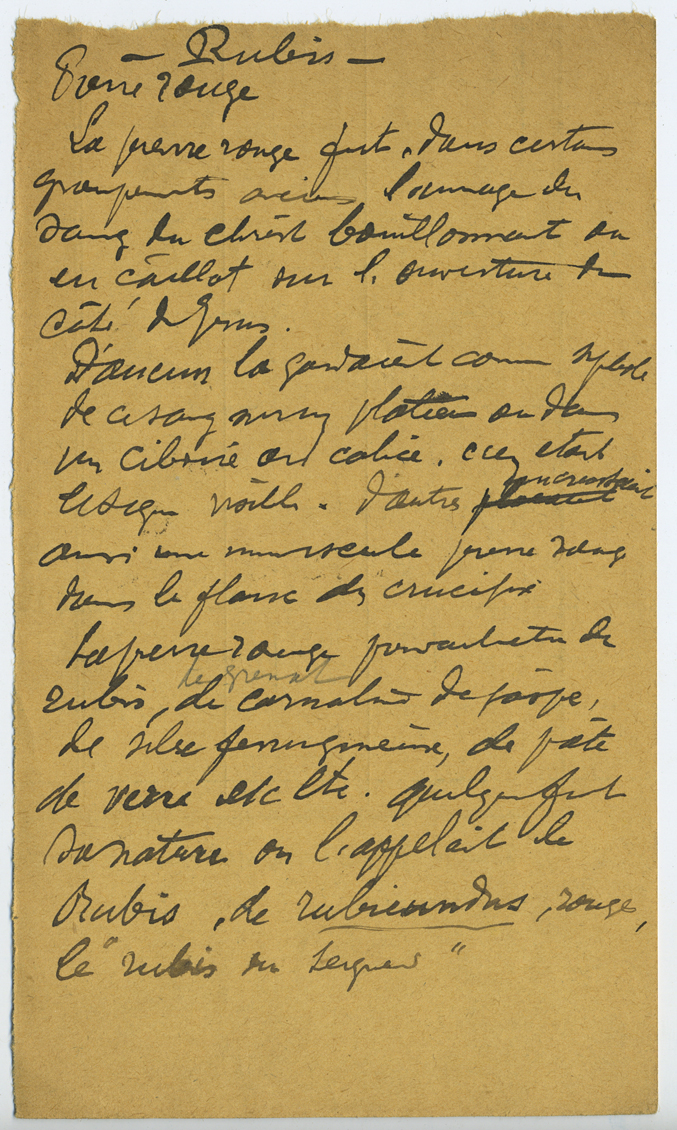 — Rubis —
Pierre rouge
La pierre rouge fut, dans certains
groupements l'image du
sang du Christ bouillonnant ou
en caillot sur l'ouverture du
côté de Jésus.
D'aucuns la gardaient comme symbole
de ce sang sur un plateau ou dans
un ciboire ou calice. c'était
le signe visible. d'autres incrustaient
aussi une minuscule pierre rouge
dans le flanc du crucifix
La pierre rouge pouvait être de
le grenat
rubis, de cornaline de jaspe,
de silex ferrugineux, de pâte
de verre etc etc. quelque fut
sa nature on l'appelait le
Rubis, de rubicundus, rouge,
le "rubis du Seigneur"